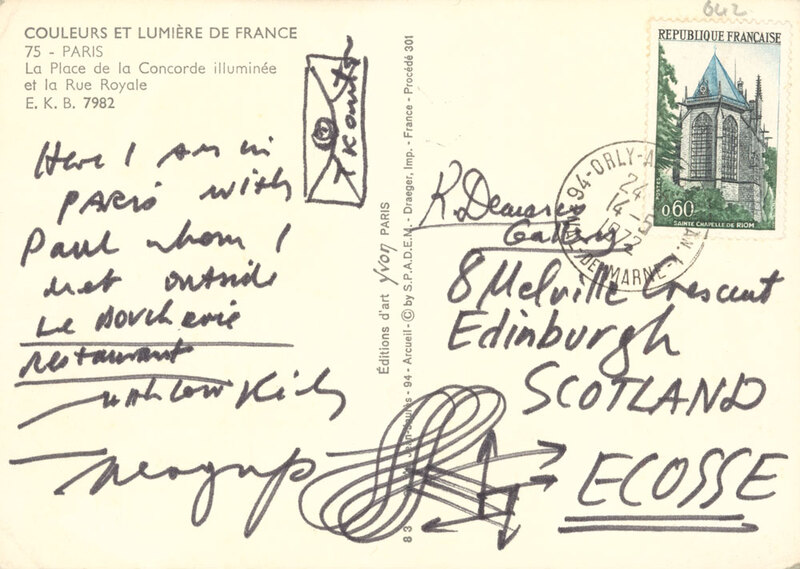 642
COULEURS ET LUMIÈRE DE FRANCE
75 - PARIS
La Place de la Concorde illuminée
et la Rue Royale
E. K. B. 7982
Here I am in
PARIS with
Paul whom I
met outside
Le Boucherie
restaurant
Éditions d'art yvon PARIS
83 Jean-Jaurès - 94 - Arcueil - © by S.P.A.D.E.M. - Draeger, Imp. - France - Procédé 301
REPUBLIQUE FRANCAISE
0,60
SAINTE CHAPELLE DE RIOM
94-ORLY-A
24
14-5
1972
DE-MARNE
R. Demarco
Gallery
8 Melville Crescent
Edinburgh
SCOTLAND
ECOSSE